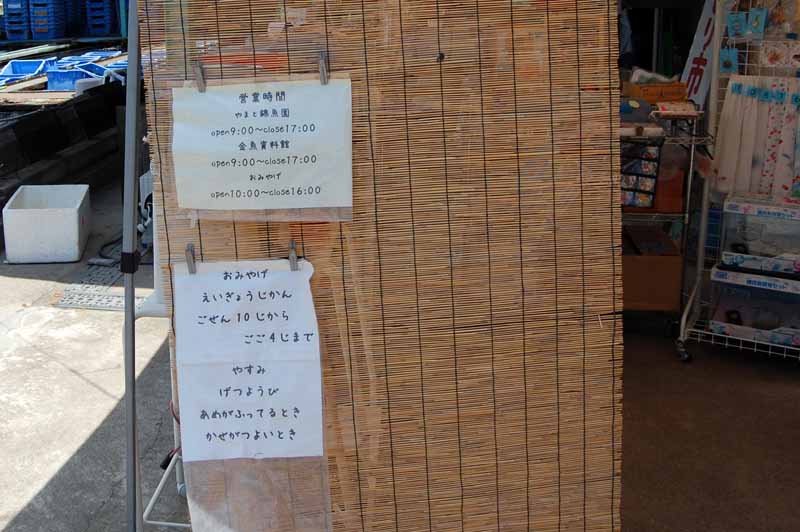 営業時間
やまと錦魚園
open9:00～close17:00
金魚資料館
open9:00～close17:00
おみやげ
open10:00～close16:00
おみやげ
えいぎょうじかん
ごぜん10じから
ごご4じまで
やすみ
げつようび
あめがふってるとき
かぜがつよいとき
り市